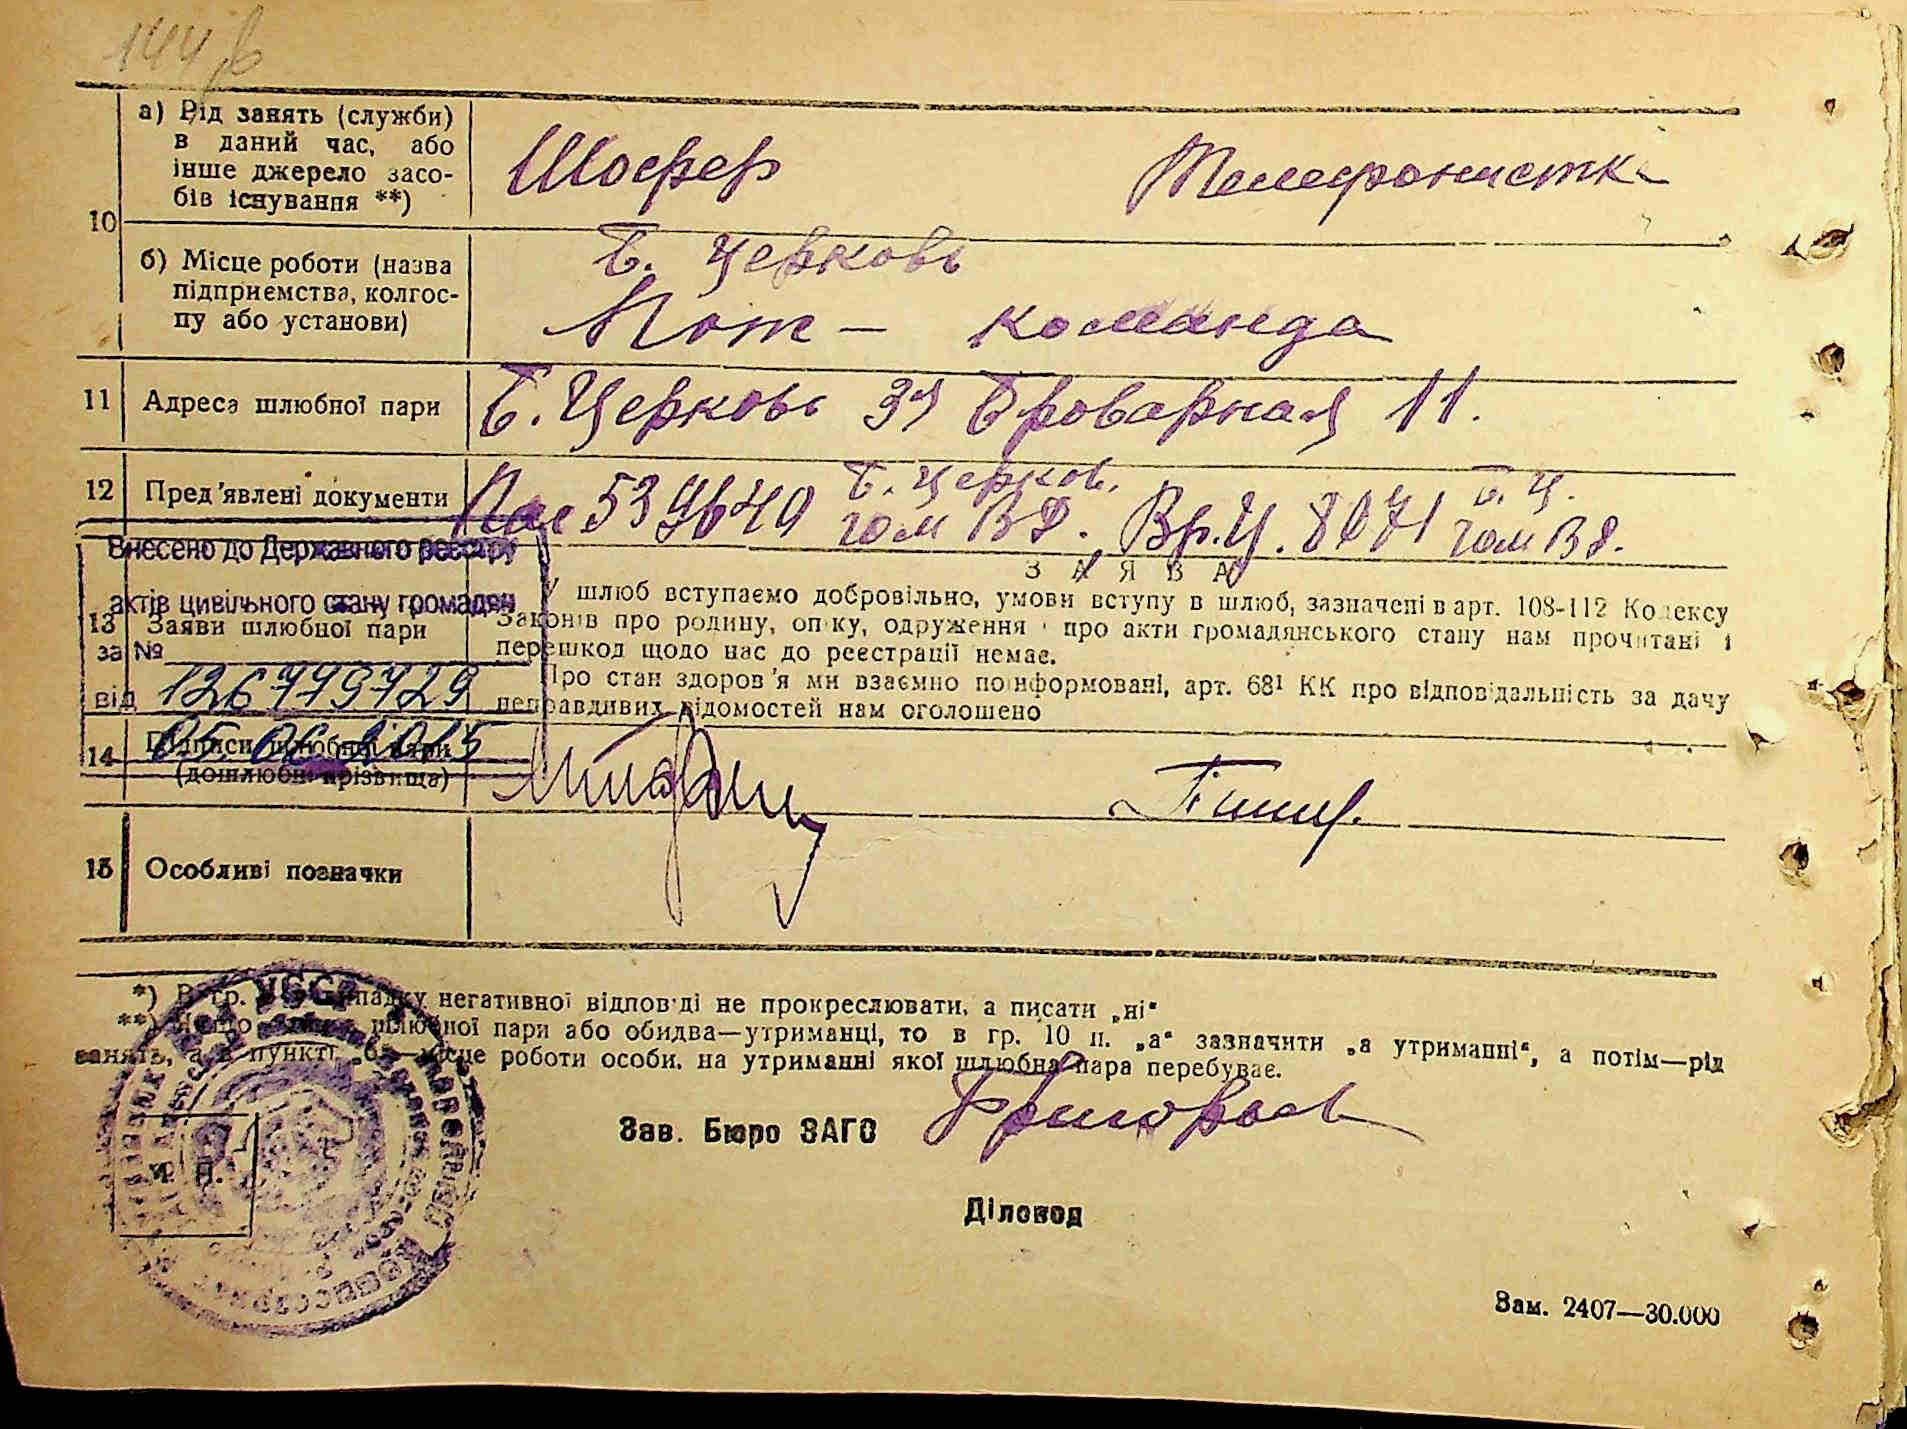 144 в
10
а) Рід занять (служби)
в даний час, або
інше джерело засо-
бів існування **)
Шофер Телефонистка
б) Місце роботи (назва
підприємства, колгос-
пу або установи)
Б. Церковь
Пож - команда
11 Адреса шлюбної пари
Б. Церковь Броварная 11.
12 Пред'явлені документи
Б. Церков. Б. Ц.
Внесено до Державного реєстру
актів цивільного стану громадян
за №
126779729
від 05.06.2015
ЗАЯВА
13 Заяви шлюбної пари
У шлюб вступаємо добровільно, умови вступу в шлюб, зазначені в арт. 108-112 Кодексу
Законів про родину, опіку, одруження і про акти громадянського стану нам прочитані і
перешкод щодо нас до реєстрації немає.
Про стан здоров'я ми взаємно поінформовані, арт. 68¹ КК про відповідальність за дачу
неправдивих відомостей нам оголошено
14 Підписи шлюбної пари
(дошлюбні прізвища)
15 Особливі позначки
*) В гр. випадку негативної відповіді не прокреслювати, а писати „ні“
**) Якщо шлюбної пари або обидва—утриманці, то в гр. 10 п. „а“ зазначити „а утриманні“, а потім—рід
занять, а в пункті „б“—місце роботи особи, на утриманні якої шлюбна пара перебуває.
УССР
М. П.
Зав. Бюро ЗАГС
Діловод
Зам. 2407—30.000